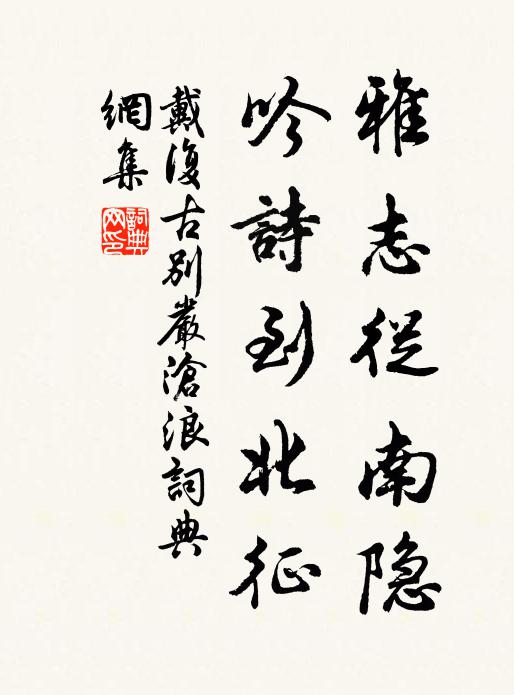 雅志從南隐
吟詩到北征
戴復古別嚴滄浪詞典
網集
詞典
网印